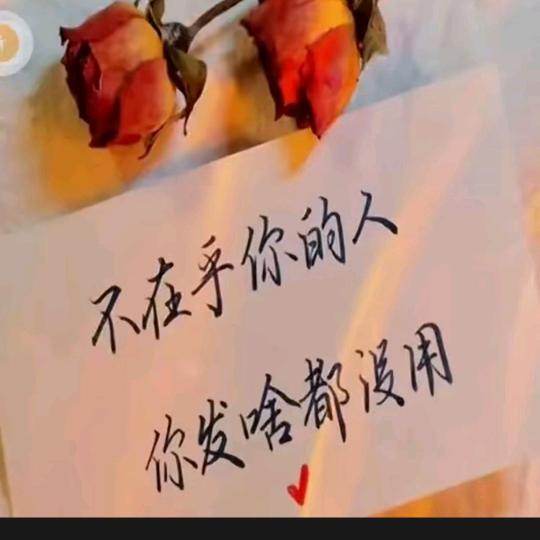 不在乎你的人
你发啥都没用